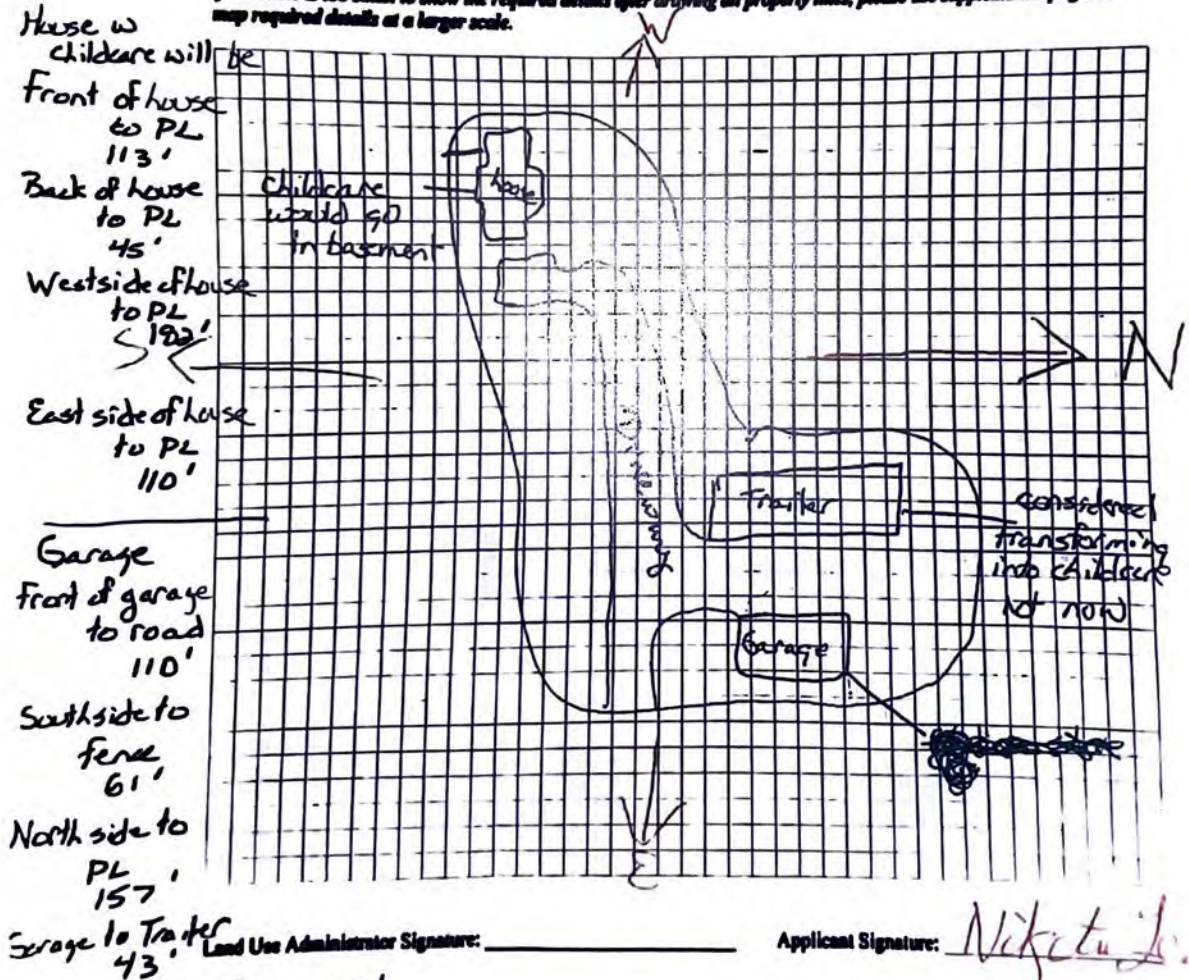 map required details at a larger scale.
W
House w
childcare will be
Front of house
to PL
113'
Back of house
to PL
45'
Westside of house
to PL
182'
S
East side of house
to PL
110'
Garage
Front of garage
to road
110'
Southside to
fence
61'
North side to
PL
157'
Garage to Trailer
43'
childcare
would go
in basement
house
Driveway
N
Trailer
considered
transforming
into childcare
not now
Garage
E
Land Use Administrator Signature:
Applicant Signature: